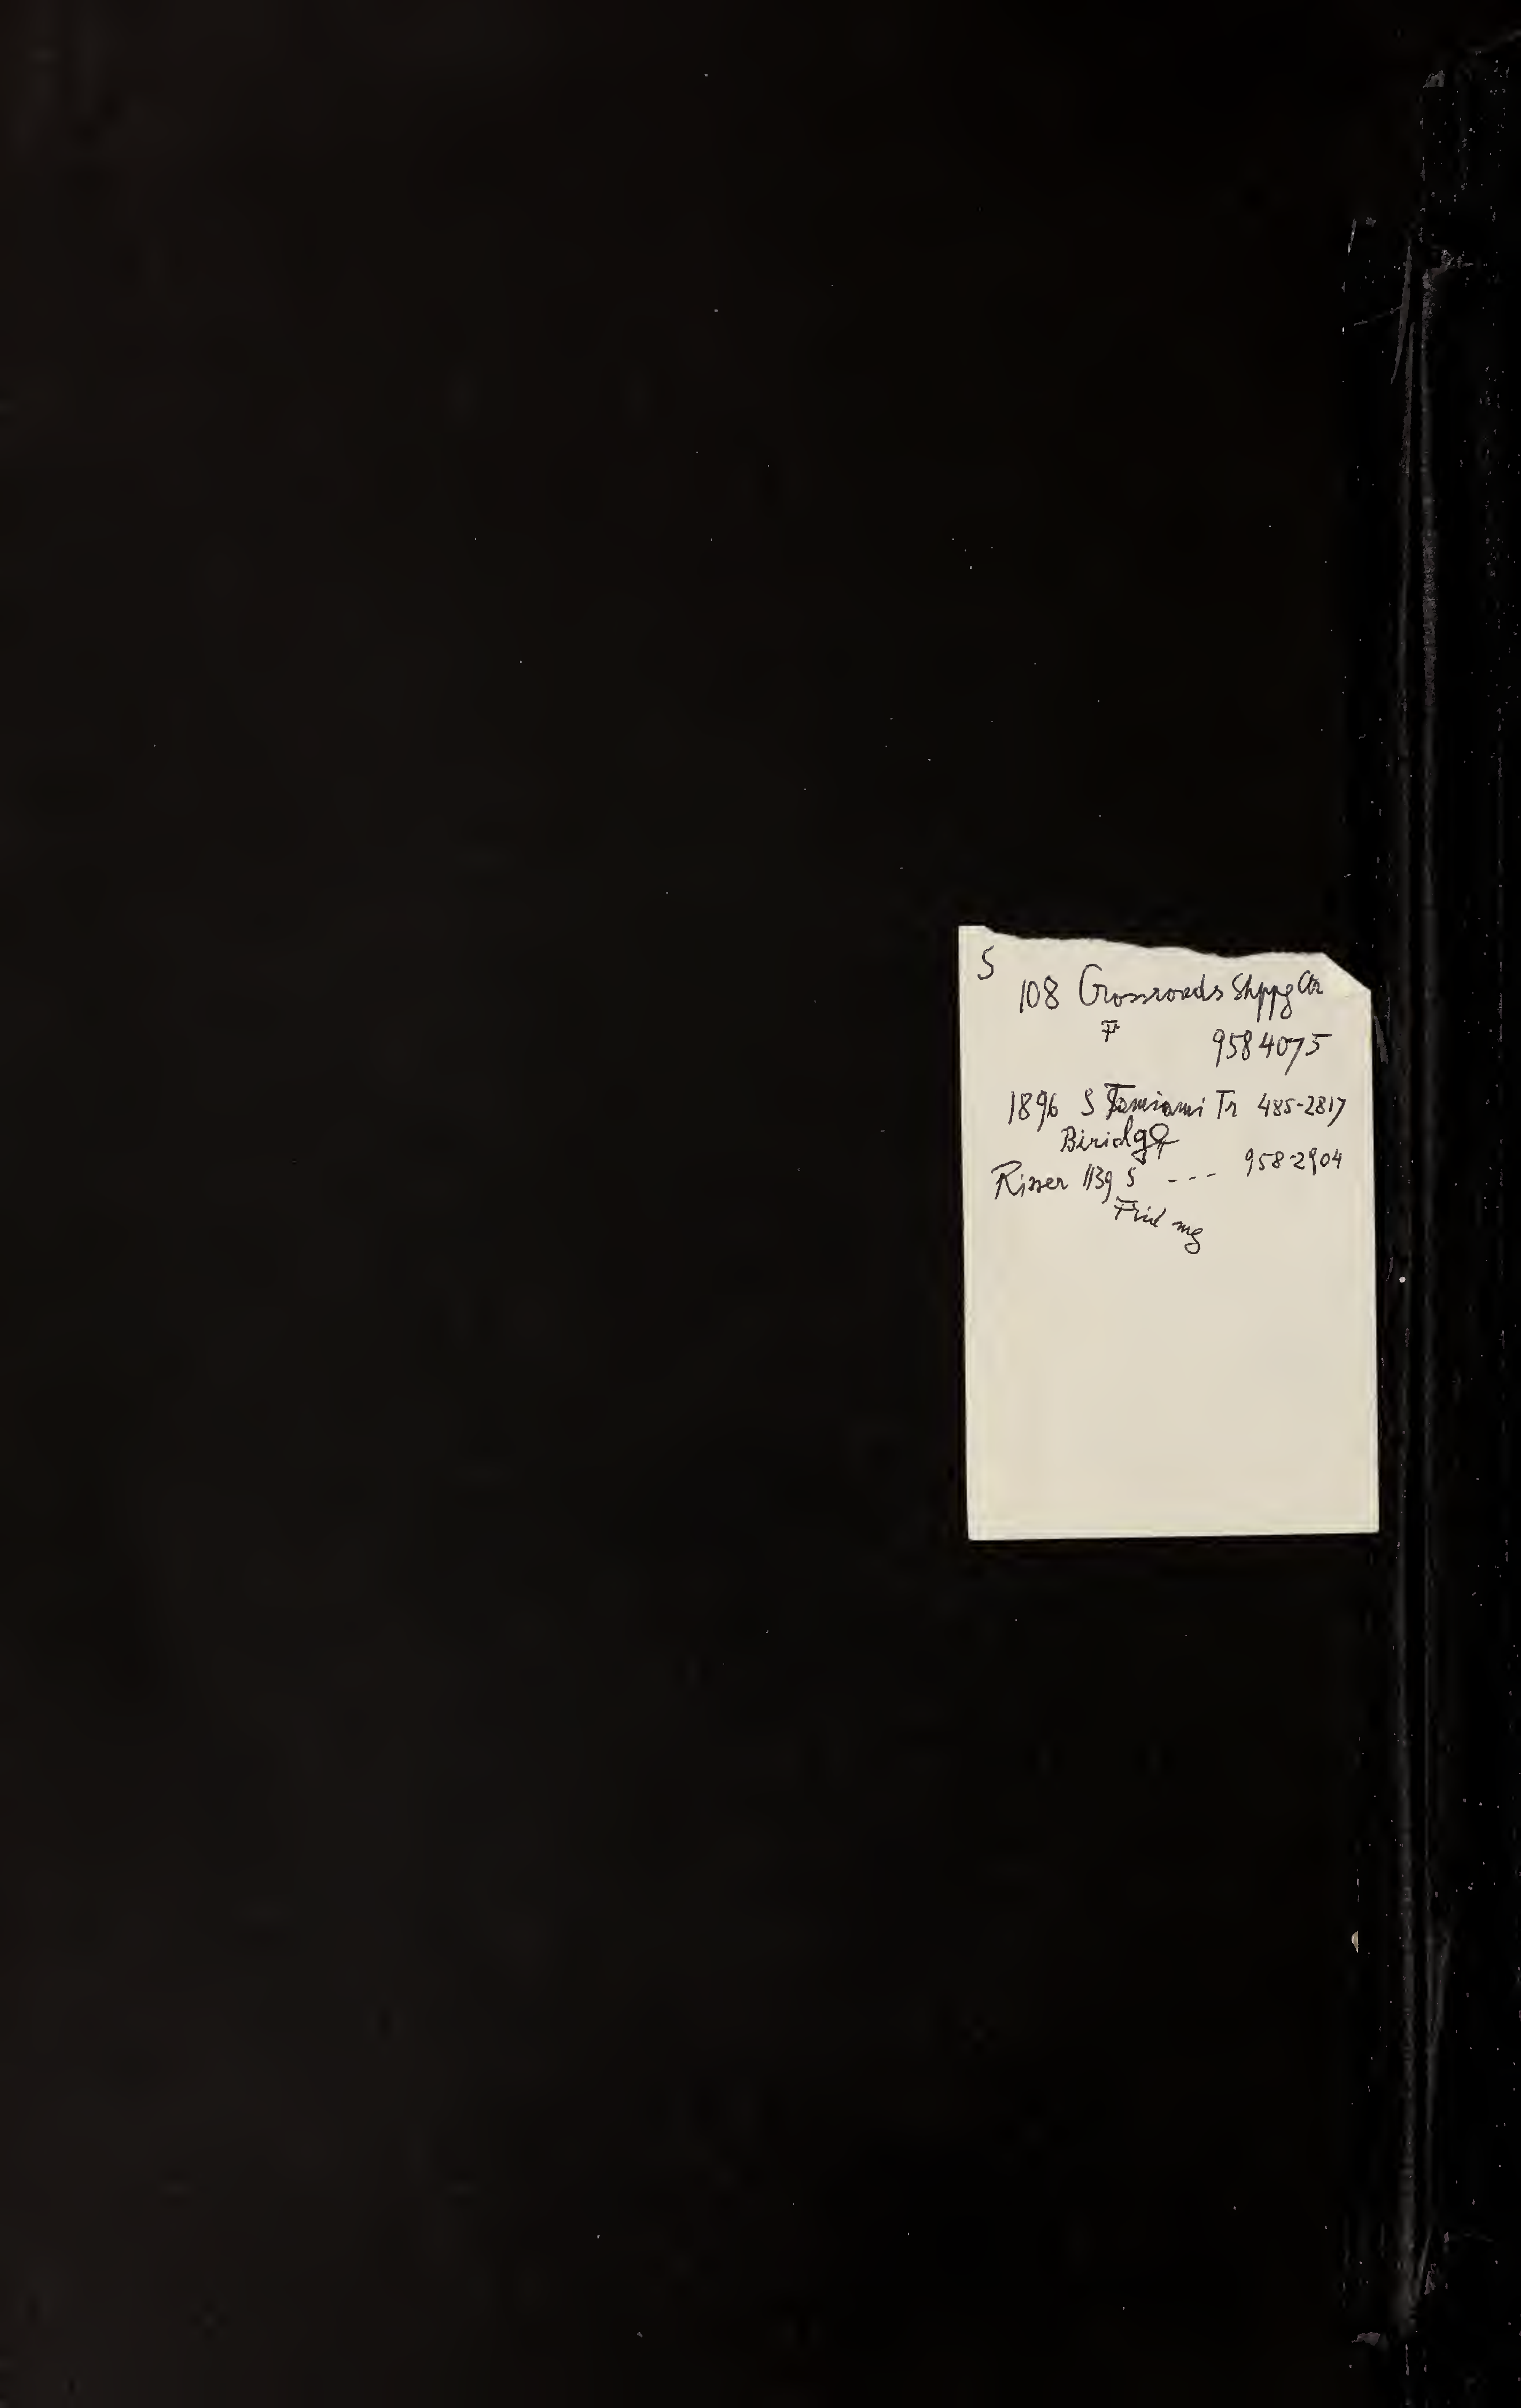 S
108 Crossroads Shppg Ctr
F 9584075
1896 S Tamiami Tr 485-2817
Risser 1139 S --- 958-2904